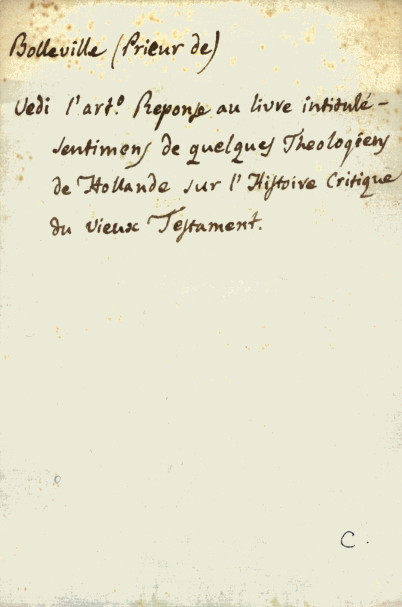 Bolleville (Prieur de)
Vedi l'art.º Reponse au livre intitulé -
sentimens de quelques Theologiens
de Hollande sur l'Histoire Critique
du vieux Testament.
C.